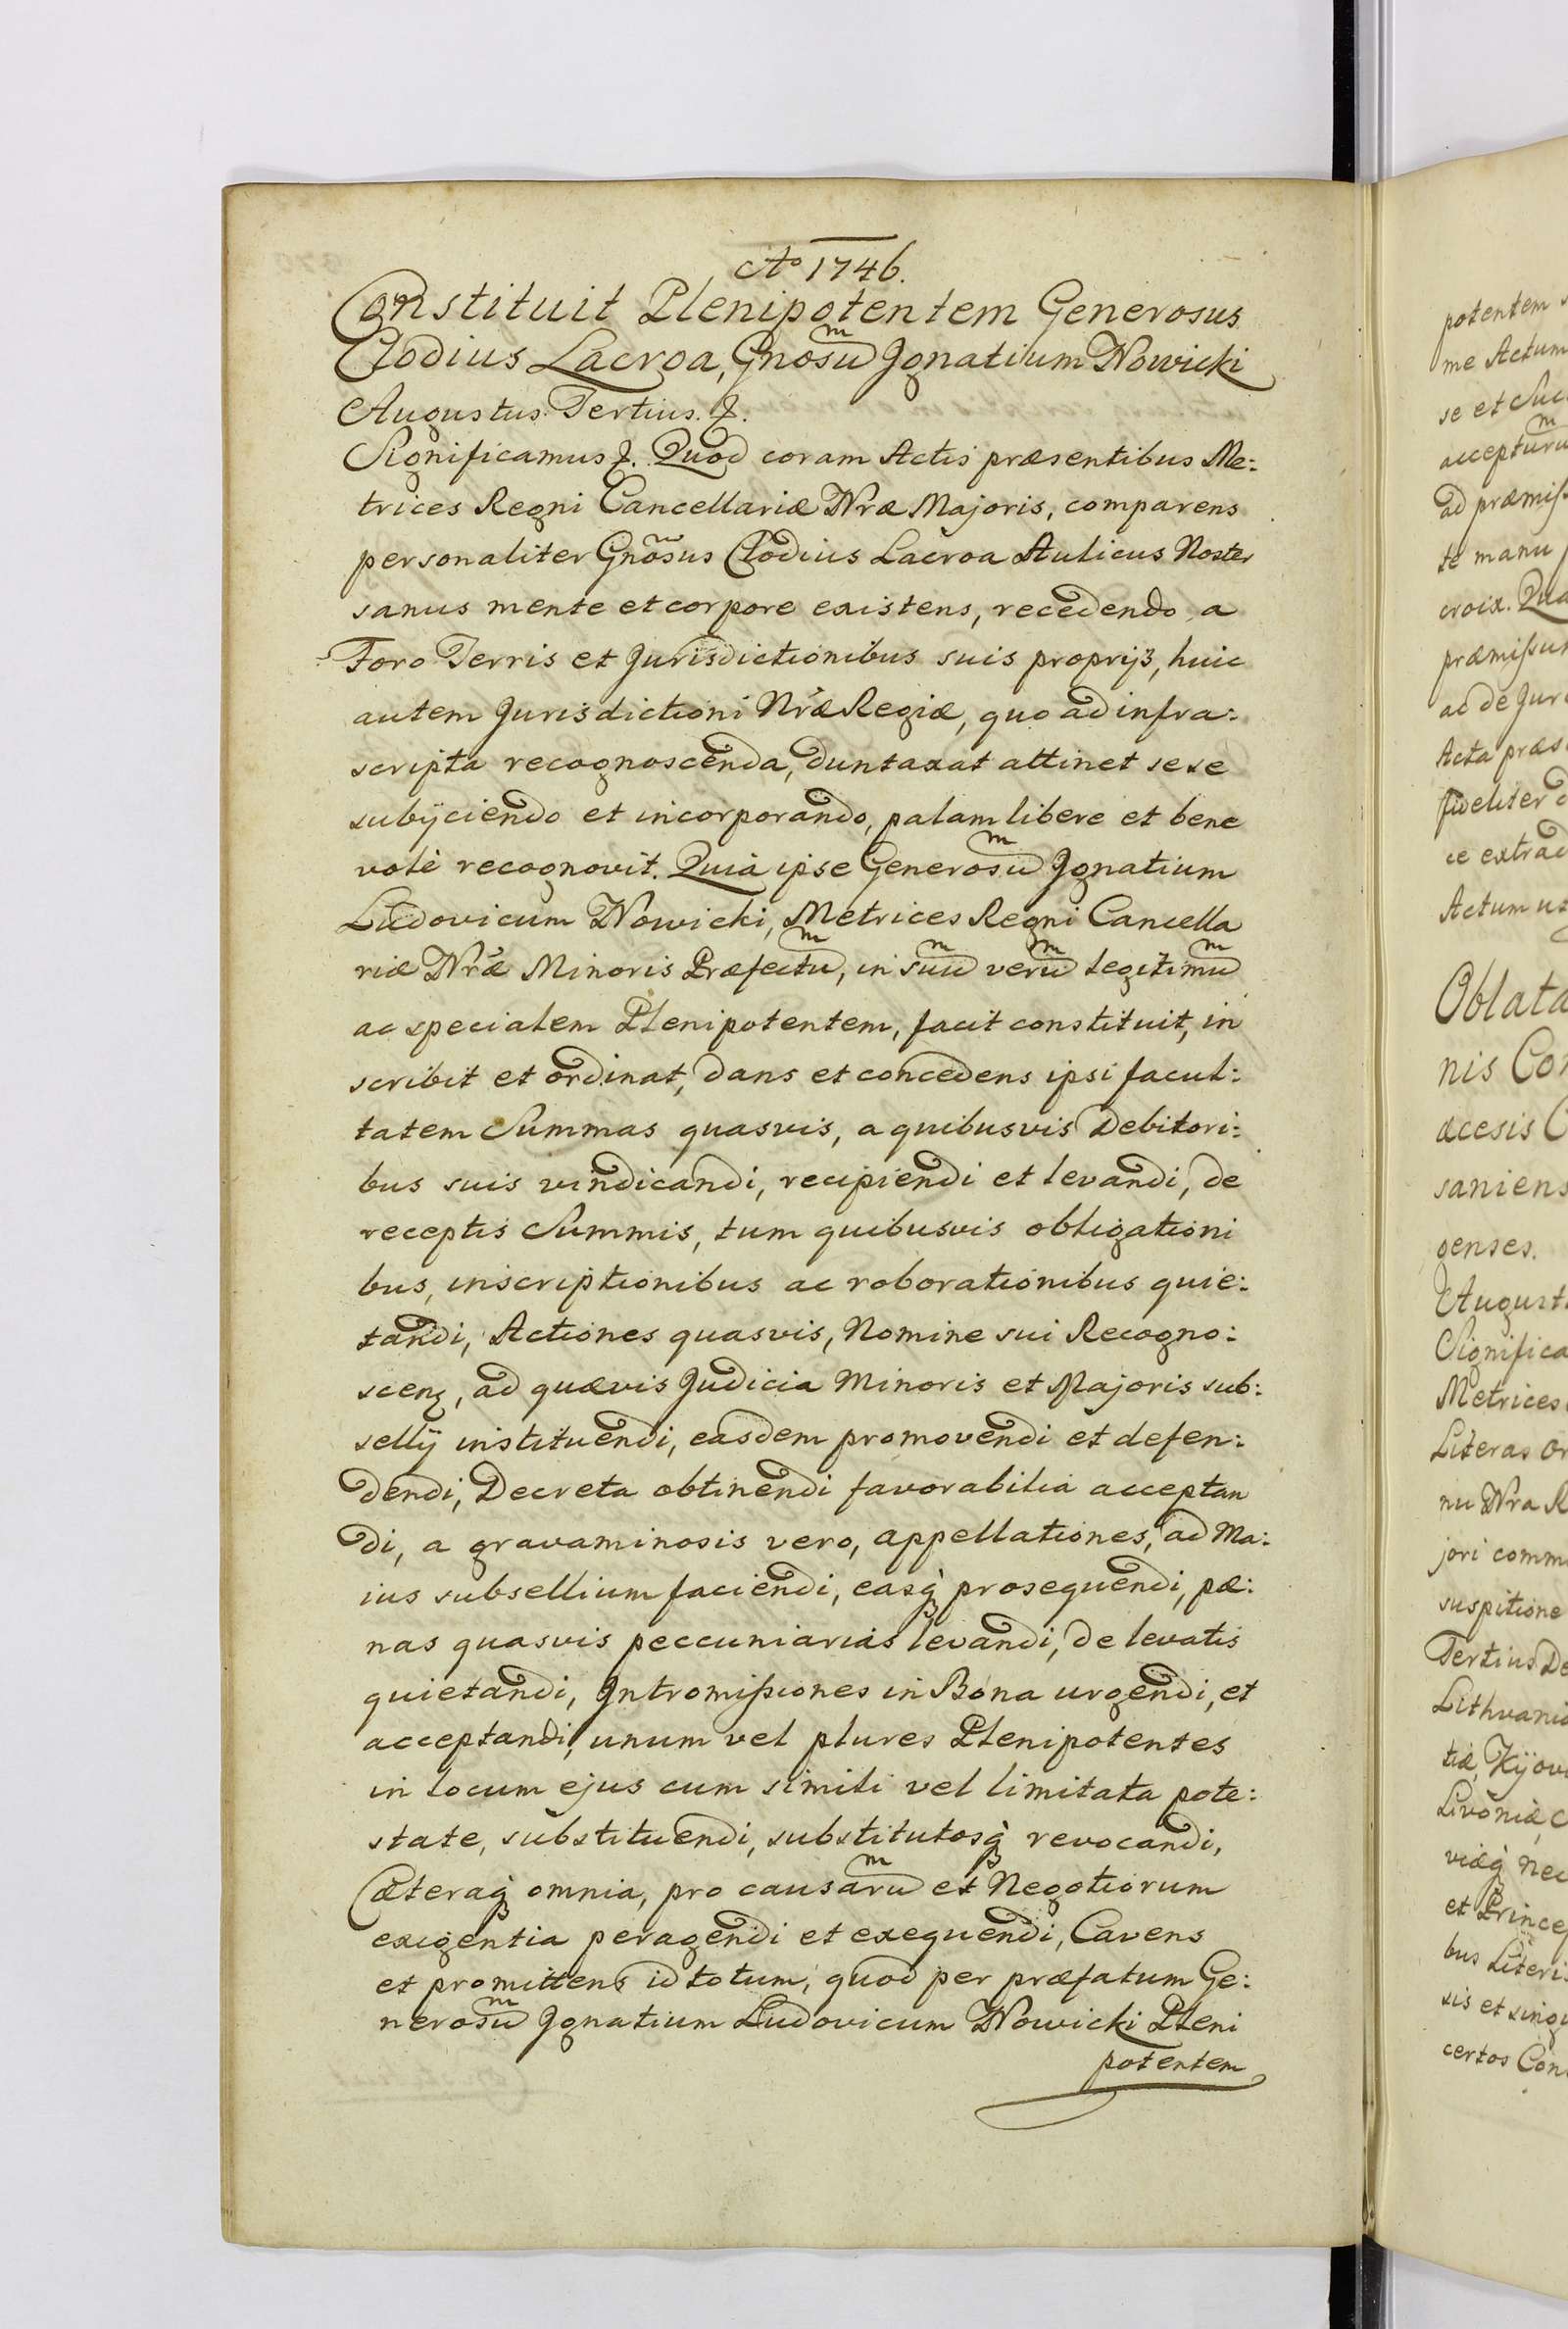 Ao 1746.
Constituit Plenipotentem Generosus
Clodius Lacroa, Gnosum Ignatium Nowicki
Augustus Tertius. &.
Significamus &. Quod coram Actis præsentibus Me:
trices Regni Cancellariæ Nræ Majoris, comparens
personaliter Gnõsus Clodius Lacroa Aulicus Noster
sanus mente et corpore existens, recedendo a
Foro Terris et Jurisdictionibus suis proprijs, huic
autem Jurisdictioni Nræ Regiæ, quo ad infra:
scripta recognoscenda, duntaxat attinet sese
subijciendo et incorporando, palam libere et bene
volè recognovit. Quia ipse Generosum Ignatium
Ludovicum Nowicki, Metrices Regni Cancella
riæ Nræ Minoris Præfectum, in suum verum legitimum
ac specialem Plenipotentem, facit constituit, in
scribit et ordinat, dans et concedens ipsi facul:
tatem Summas quasvis, a quibusvis Debitori:
bus suis vindicandi, recipiendi et levandi, de
receptis Summis, tum quibusvis obligationi
bus, inscriptionibus ac roborationibus quie:
tandi, Actiones quasvis, Nomine sui Recogno:
scenz, ad quævis Judicia Minoris et Majoris sub:
sellij instituendi, easdem promovendi et defen:
dendi, Decreta obtinendi favorabilia acceptan
di, a gravaminosis vero, appellationes, ad Ma:
ius subsellium faciendi, easq̀ prosequendi, pæ:
nas quasvis peccuniarias levandi, de levatis
quietandi, Intromissiones in Bona urgendi, et
acceptandi, unum vel plures Plenipotentes
in locum ejus cum simili vel limitata pote:
state, substituendi, substitutosq̀ revocandi,
Cæteraq̀ omnia, pro causarum et Negotiorum
exigentia peragendi et exequendi, Cavens
et promittens id totum, quod per præfatum Ge:
nerosum Ignatium Ludovicum Nowicki Pleni
potentem
potentem
me Actum
se et Suc
accepturum
ad præmiss
te manu
croix. Qua
præmissum
ac de Jure
Acta præs
fideliter
ce extrad
Actum ut
Oblata
nis Con
æcesis C
saniens
genses.
August
Significa
Metrices
Literas or
nu Nra R
jori comm
suspitione
Tertius De
Lithvania
tiæ, Kijov
Livoniæ, C
viæq̀ nec
et Princep
bus Literis
sis et singu
certos Con